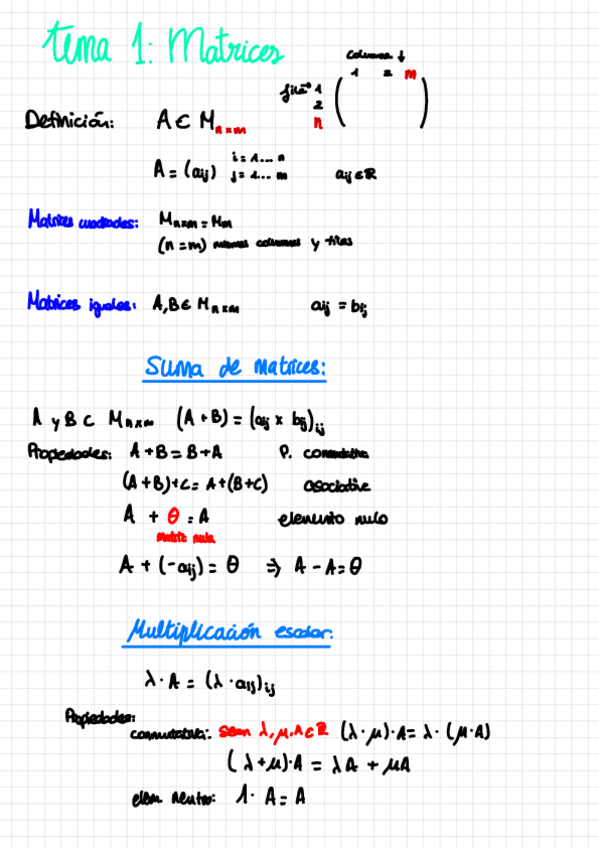 tema 1: Matrices
columna ↓
1 2 m
filas 1
2
n
Definición: A ∈ M n×m
A = (aij) i = 1... n
j = 1... m aij ∈ R
Matrices cuadradas: Mn×m = Mm
(n = m) mismas columnas y filas
Matrices iguales: A, B ∈ M n×m aij = bij
Suma de matrices:
A y B ⊂ Mn×m (A + B) = (aij × bij)ij
Propiedades: A + B = B + A P. conmutativa
(A + B) + C = A + (B + C) asociativa
A + θ = A elemento nulo
matriz nula
A + (-aij) = θ ⇒ A - A = θ
Multiplicación escalar:
λ · A = (λ · aij)ij
Propiedades:
conmutativa: sean λ, μ, A ∈ R (λ · μ) · A = λ · (μ · A)
(λ + μ) · A = λA + μA
elem. neutro: 1 · A = A